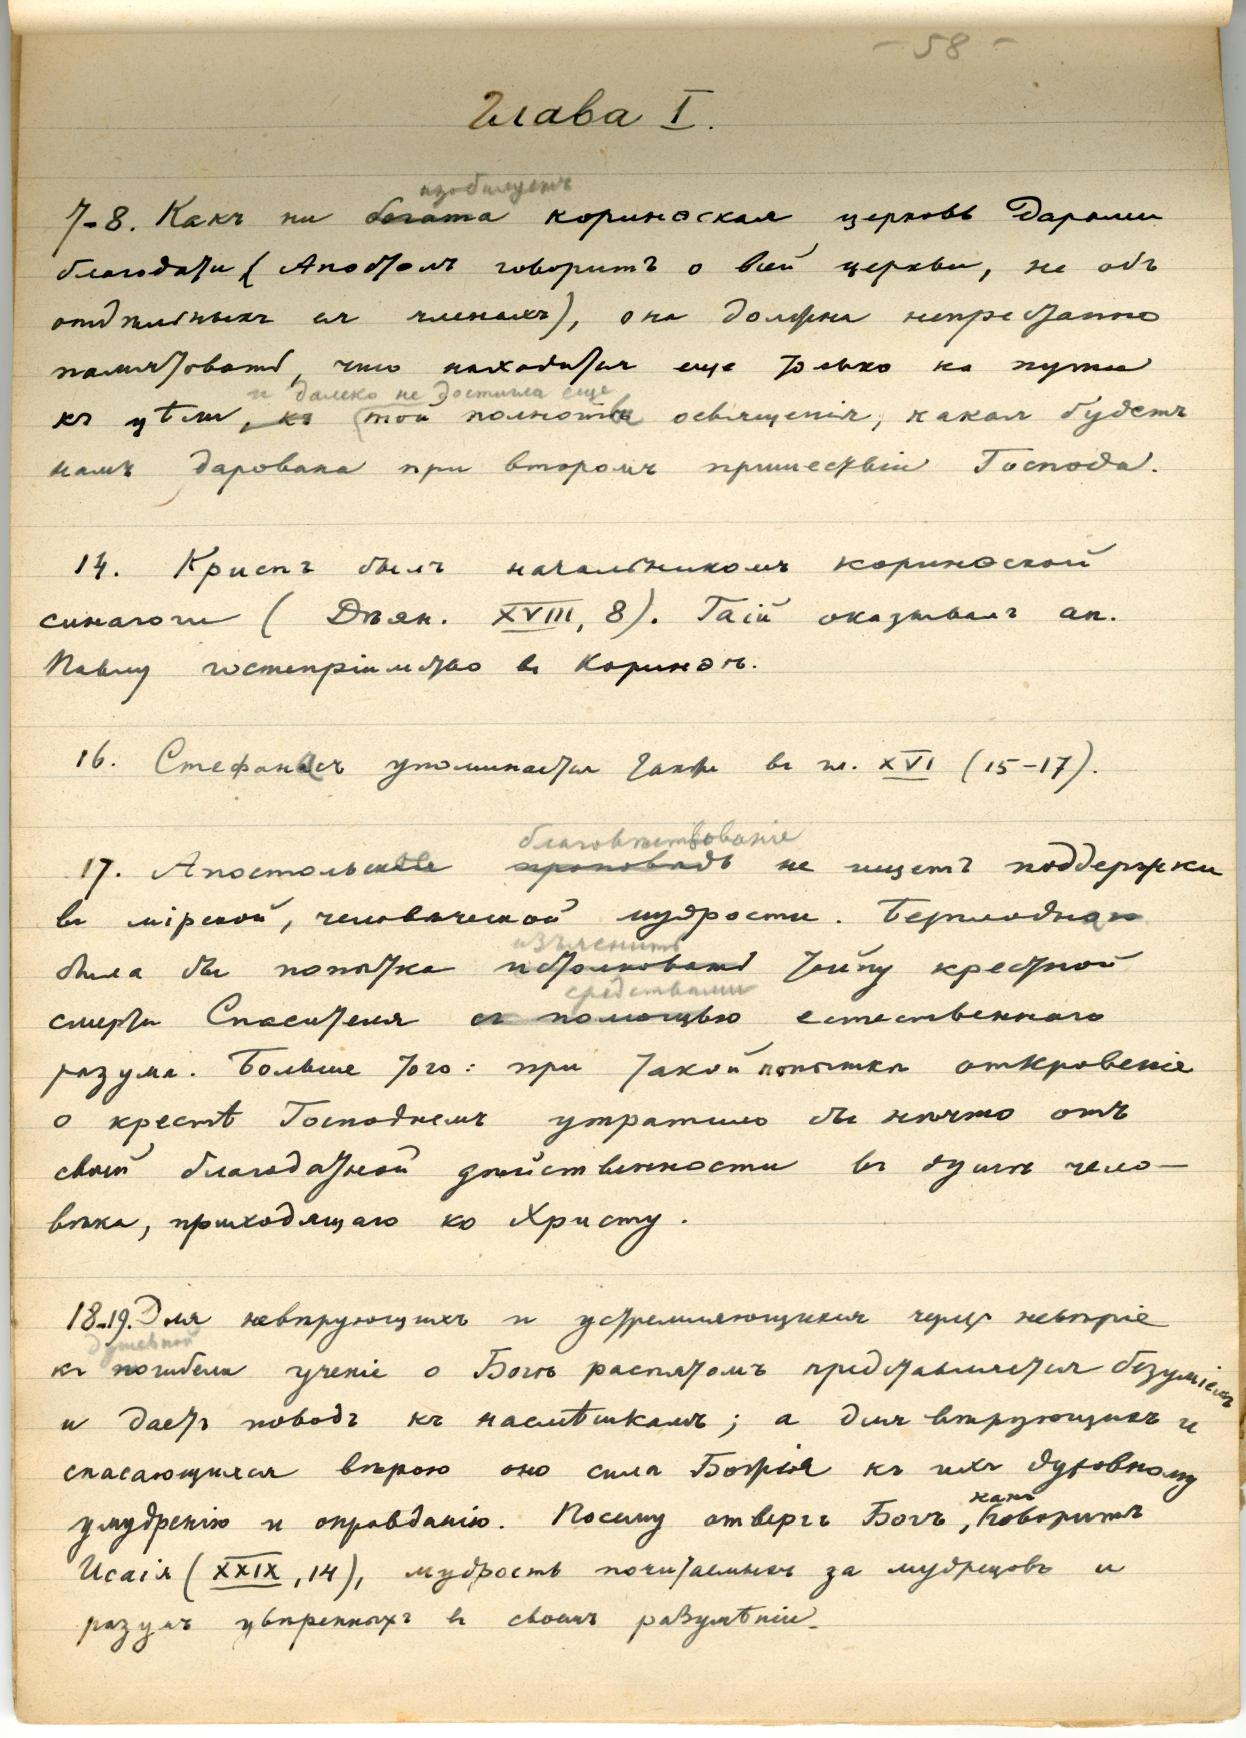 - 58 -
Глава I.
изобилуетъ
7-8. Какъ ни богата коринѳская церковь дарами
благодати (Апостолъ говоритъ о всей церкви, не объ
отдѣльныхъ ея членахъ), она должна непрестанно
памятовать, что находится еще только на пути
и далеко не достигла еще
къ цѣли, къ той полноты освященія, какая будетъ
намъ дарована при второмъ пришествіи Господа.
14. Криспъ былъ начальникомъ коринѳской
синагоги (Дѣян. XVIII, 8). Гаій оказывалъ ап.
Павлу гостепріимство въ Коринѳѣ.
16. Стефанъ упоминается также въ гл. XVI (15-17).
благовѣствованіе
17. Апостольское проповѣдь не ищетъ поддержки
въ мірской, человѣческой мудрости. Безплодною
изъяснить
была бы попытка истолковать тайну крестной
средствами
смерти Спасителя съ помощью естественнаго
разума. Больше того: при такой попыткѣ откровеніе
о крестѣ Господнемъ утратило бы нѣчто отъ
своей благодатной дѣйственности въ душѣ чело-
вѣка, приходящаго ко Христу.
18-19. Для невѣрующихъ и устремляющихся чрезъ невѣріе
душевной
къ погибели ученіе о Богѣ распятомъ представляется безуміемъ
и даетъ поводъ къ насмѣшкамъ; а для вѣрующихъ и
спасающихся вѣрою оно сила Божія къ ихъ духовному
умудренію и оправданію. Посему отвергъ Богъ, какъ говоритъ
Исаія (XXIX, 14), мудрость почитаемыхъ за мудрецовъ и
разумъ увѣренныхъ въ своемъ разумѣніи.